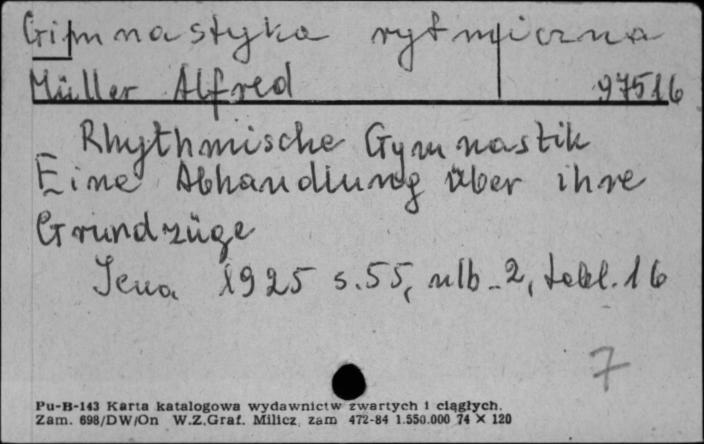 Gimnastyka rytmiczna
Müller Alfred 97516
Rhythmische Gymnastik
Eine Abhandlung über ihre
Grundzüge
Jena 1925 s. 55, nlb. 2, tabl. 16
7
Pu-B-143 Karta katalogowa wydawnictw zwartych i ciągłych.
Zam. 698/DW/On W.Z.Graf. Milicz, zam 472-84 1.550.000 74 × 120